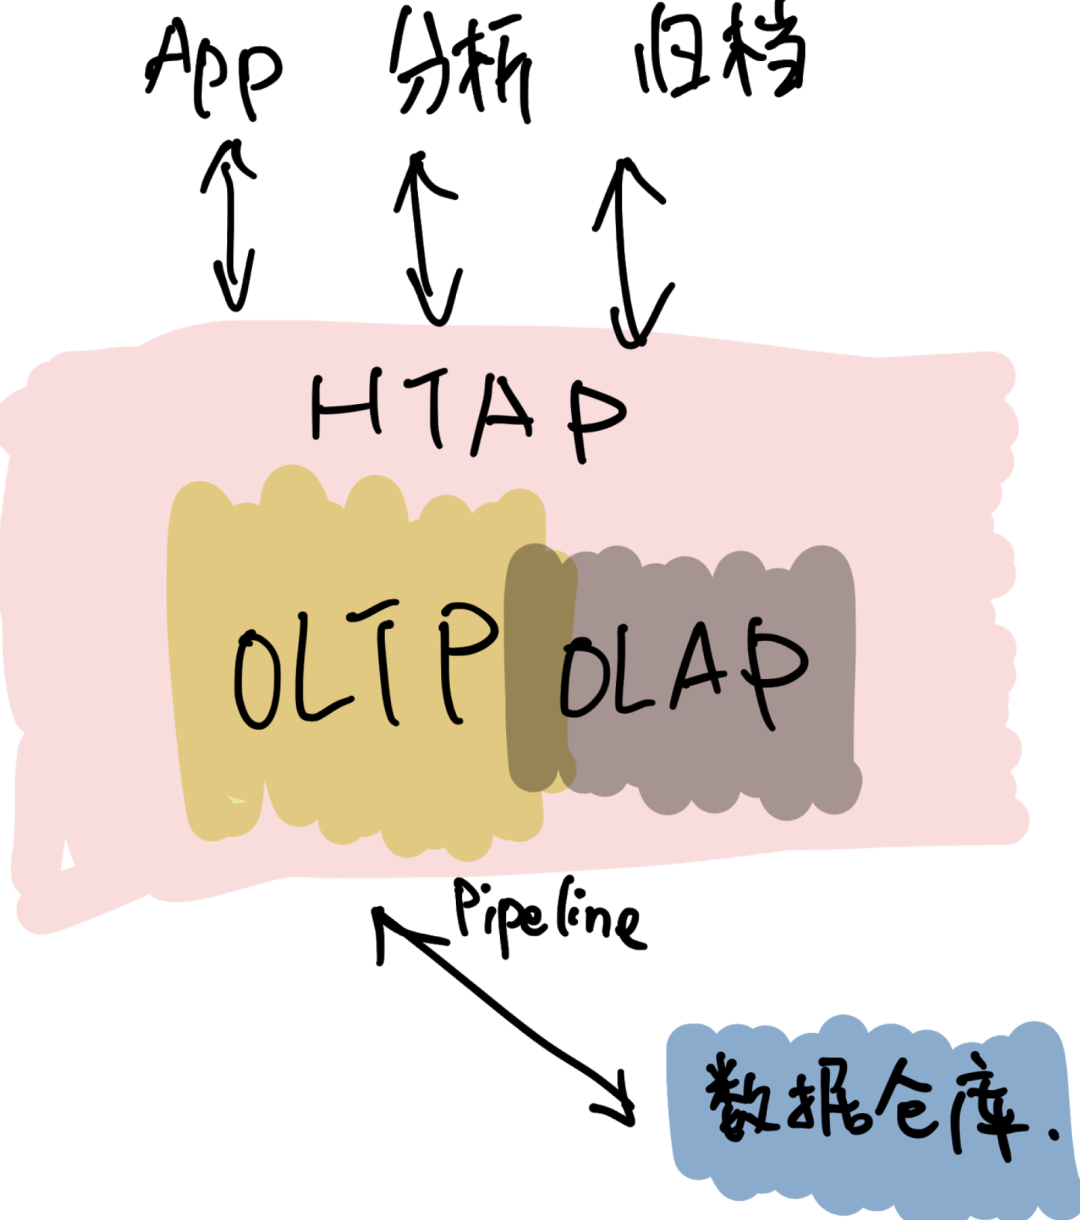 App 分析 归档
HTAP
OLTP OLAP
Pipeline
数据仓库.